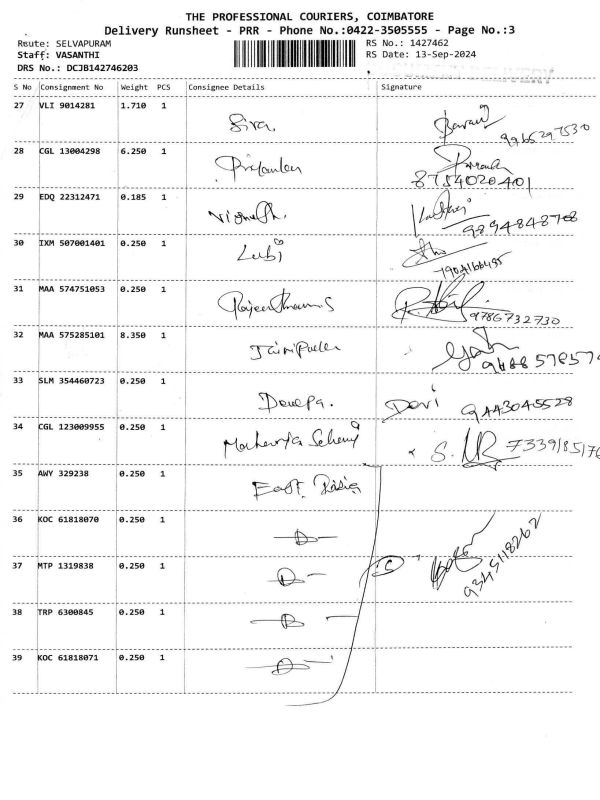 THE PROFESSIONAL COURIERS, COIMBATORE
Delivery Runsheet - PRR - Phone No.:0422-3505555 - Page No.:3
Route: SELVAPURAM RS No.: 1427462
Staff: VASANTHI RS Date: 13-Sep-2024
DRS No.: DCJB142746203
S No Consignment No Weight PCS Consignee Details Signature
27 VLI 9014281 1.710 1 Siva.
9965297530
28 CGL 13004298 6.250 1 Priyanka
8754020401
29 EDQ 22312471 0.185 1 Vignesh.
9894848708
30 IXM 507001401 0.250 1 Lubi
31 MAA 574751053 0.250 1
9786732730
32 MAA 575285101 8.350 1
33 SLM 354460723 0.250 1 Devepa. Devi 9443045528
34 CGL 123009955 0.250 1 S.
35 AWY 329238 0.250 1 East
36 KOC 61818070 0.250 1 D
37 MTP 1319838 0.250 1 D
9345118262
38 TRP 6300845 0.250 1 D
39 KOC 61818071 0.250 1 D